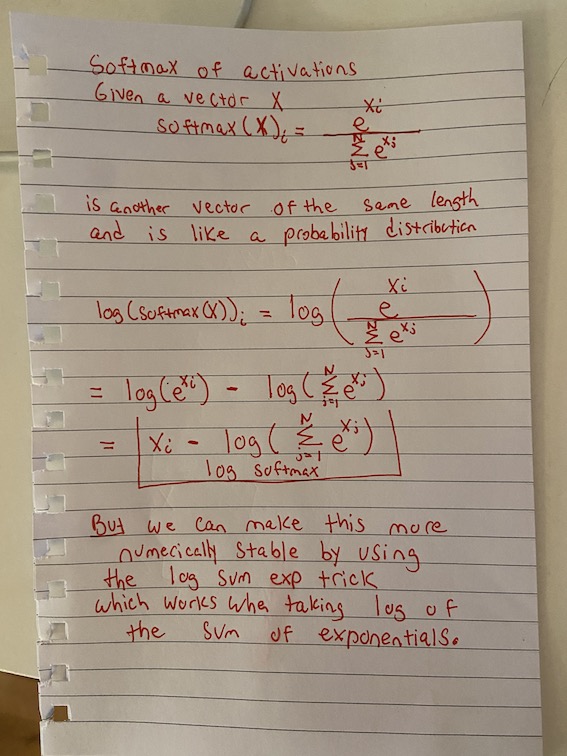 Softmax of activations
Given a vector X
softmax(X)ᵢ = e^{xᵢ} / Σ_{j=1}^{N} e^{xⱼ}
is another vector of the same length
and is like a probability distribution
log(softmax(X))ᵢ = log( e^{xᵢ} / Σ_{j=1}^{N} e^{xⱼ} )
= log(e^{xᵢ}) - log( Σ_{j=1}^{N} e^{xⱼ} )
= xᵢ - log( Σ_{j=1}^{N} e^{xⱼ} )
log softmax
But we can make this more
numerically stable by using
the log sum exp trick
which works when taking log of
the sum of exponentials.